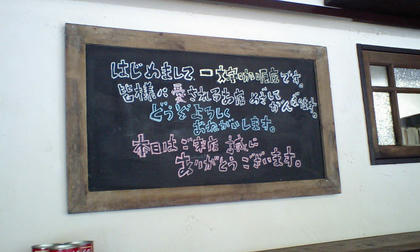 はじめまして一文字珈琲店です。
皆様に愛されるお店めざしてがんばります。
どうぞよろしく
おねがいします。
本日はご来店誠に
ありがとうございます。